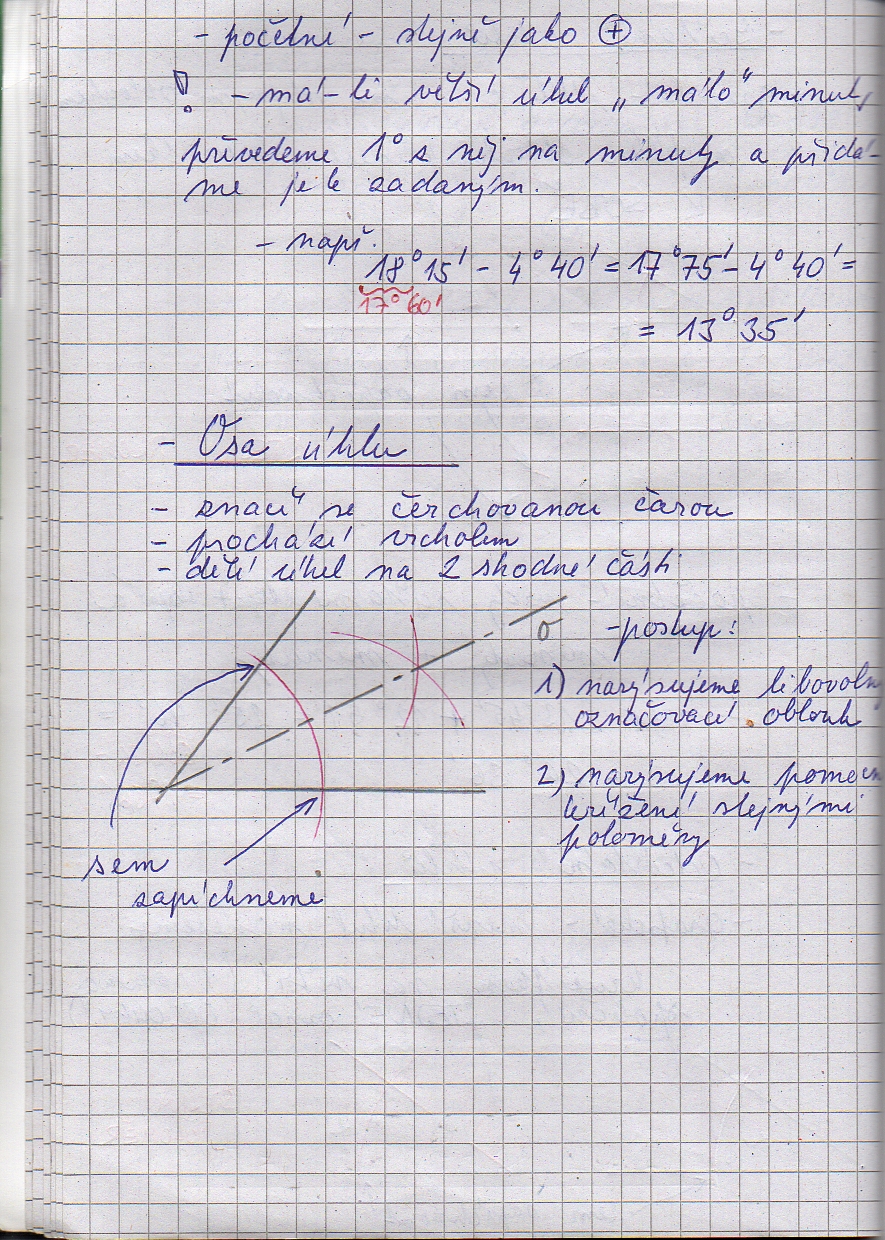 - početní - stejně jako ⊕
! - má-li větší úhel „málo“ minut,
převedeme 1° z něj na minuty a přidá-
me je k zadaným.
- např.
18°15' - 4°40' = 17°75' - 4°40' =
17°60'
= 13°35'
- Osa úhlu
- značí se čerchovanou čarou
- prochází vrcholem
- dělí úhel na 2 shodné části
o
- postup:
1) narýsujeme libovoln
označovací oblouk
2) narýsujeme pomocn
křížení stejnými
poloměry
sem
zapíchneme